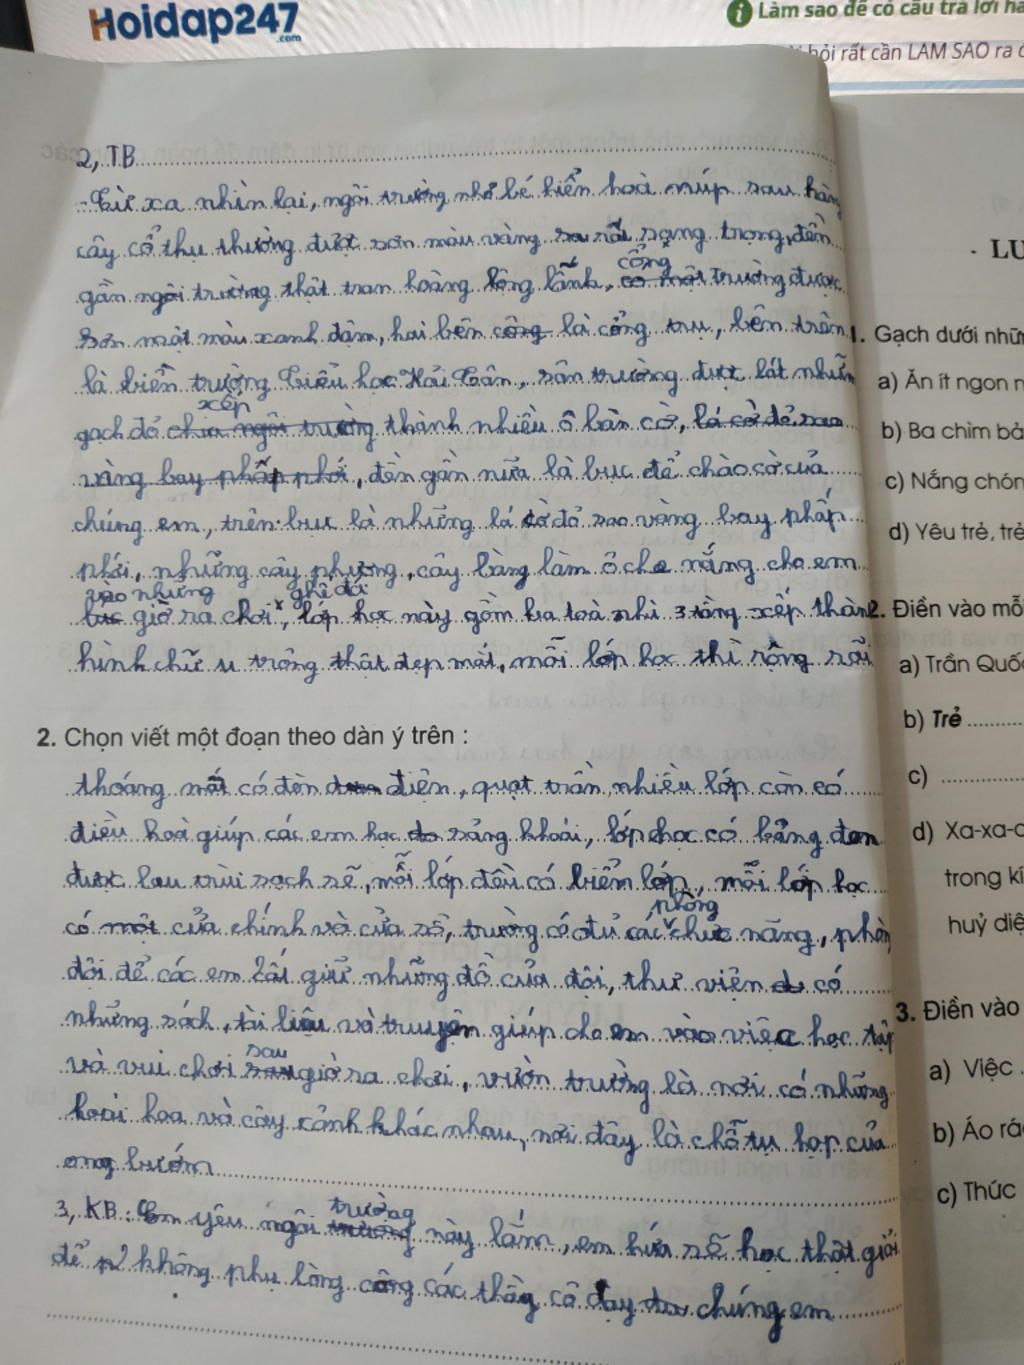 Hoidap247
.com
Làm sao để có câu trả lời
hỏi rất cần LAM SAO ra
2, TB
- Từ xa nhìn lại, ngôi trường nhỏ bé hiền hoà núp sau hàng
cây cổ thụ thường được sơn màu vàng rất sang trọng, đến
gần ngôi trường thật tran hoàng lộng lẫy, cổng trường được
sơn một màu xanh đậm, hai bên là cổng trụ, bên trên
là biển trường Tiểu học Hải Tân, sân trường được lát những
gạch đỏ xếp thành nhiều ô bàn cờ, lá cờ đỏ sao
vàng bay phấp phới, đến gần nữa là bục để chào cờ của
chúng em, trên bục là những lá cờ đỏ sao vàng bay phấp
phới, những cây phượng, cây bàng làm ô che nắng cho em
vào những giờ ra chơi, ghế đá lớp học này gồm ba toà nhà 3 tầng xếp thành
hình chữ u trông thật đẹp mắt, mỗi lớp học thì rộng rãi
2. Chọn viết một đoạn theo dàn ý trên :
thoáng mát có đèn điện, quạt trần, nhiều lớp còn có
điều hoà giúp các em học sảng khoái, lớp học có bảng đen
được lau chùi sạch sẽ, mỗi lớp đều có biển lớp, mỗi lớp học
có một cửa chính và cửa sổ, trường có đủ các phòng chức năng, phòng
đội để các em cất giữ những đồ của đội, thư viện có
những sách, tài liệu và truyện giúp cho em vào việc học tập
và vui chơi sau giờ ra chơi, vườn trường là nơi có những
loài hoa và cây cảnh khác nhau, nơi đây là chỗ tụ họp của
ong bướm
3, KB: Em yêu ngôi trường này lắm, em hứa sẽ học thật giỏi
để không phụ lòng công các thầy cô dạy chúng em
LU
1. Gạch dưới nhữ
a) Ăn ít ngon n
b) Ba chìm bả
c) Nắng chón
d) Yêu trẻ, trẻ
2. Điền vào mỗ
a) Trần Quố
b) Trẻ
c)
d) Xa-xa-c
trong kỉ
huỷ diệ
3. Điền vào
a) Việc
b) Áo rá
c) Thức